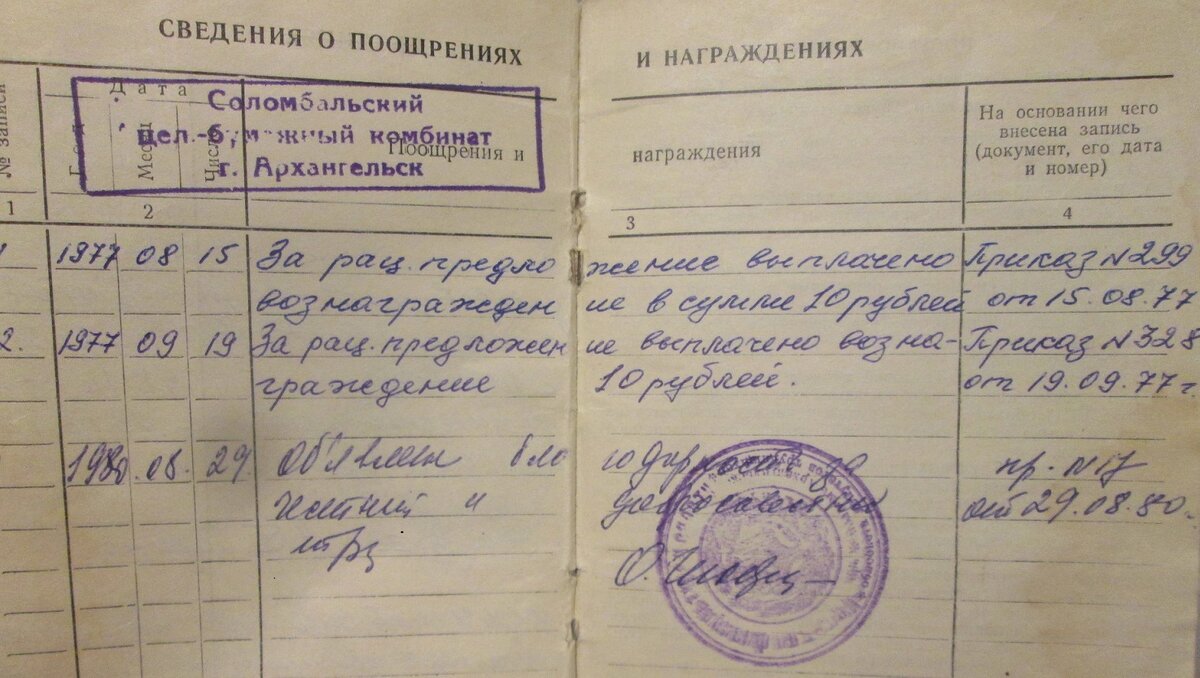 СВЕДЕНИЯ О ПООЩРЕНИЯХ И НАГРАЖДЕНИЯХ
Соломбальский
цел.-бумажный комбинат
г. Архангельск
№ записи
Дата
Год
Месяц
Число
Поощрения и награждения
На основании чего
внесена запись
(документ, его дата
и номер)
1 2 3 4
1 1977 08 15 За рац. предложение выплачено Приказ № 299
вознаграждение в сумме 10 рублей от 15.08.77
2. 1977 09 19 За рац. предложение выплачено возна- Приказ № 328
граждение 10 рублей. от 19.09.77 г.
1980.08.29. Объявлена благодарность за пр. № 17
честный и добросовестный от 29.08.80.
труд